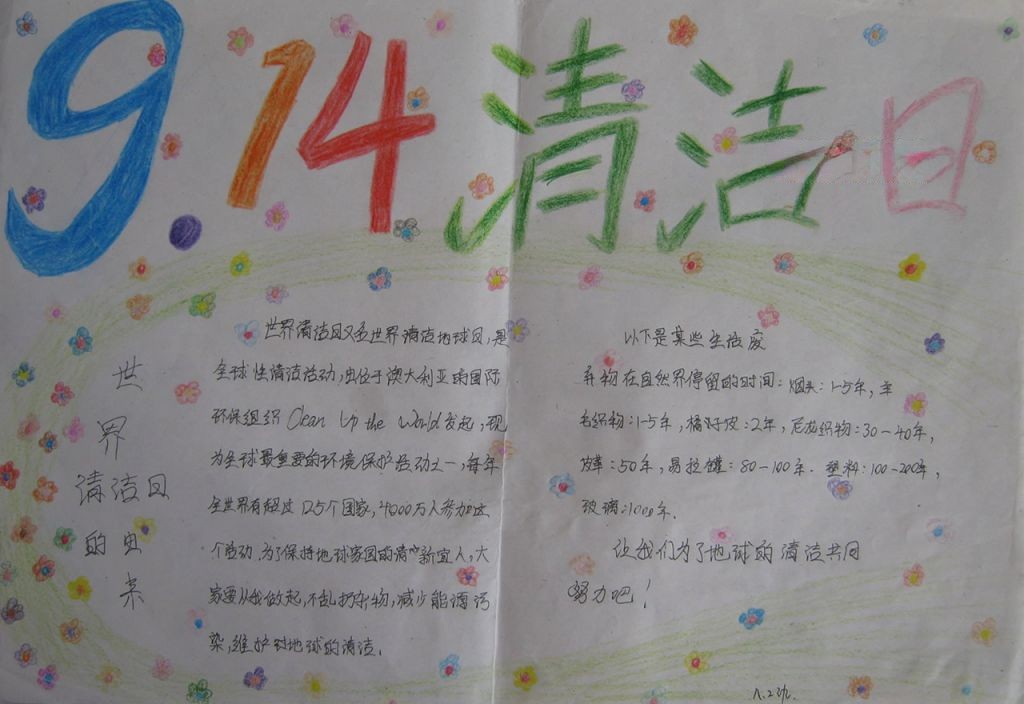 9.14清洁日
世
界
清洁日
的由
来
世界清洁日又名世界清洁地球日,是
全球性清洁活动,由位于澳大利亚的国际
环保组织 Clean Up the World 发起,现
为全球最重要的环境保护活动之一,每年
全世界有超过125个国家,4000万人参加这
个活动.为了保持地球家园的清空新宜人,大
家要从我做起,不乱扔弃物,减少能源污
染,维护对地球的清洁.
以下是某些生活废
弃物在自然界停留的时间:烟头:1-5年,羊
毛织物:1-5年,橘子皮:2年,尼龙织物:30-40年,
皮革:50年,易拉罐:80-100年.塑料:100-200年,
玻璃:1000年.
让我们为了地球的清洁共同
努力吧!
八.2班.